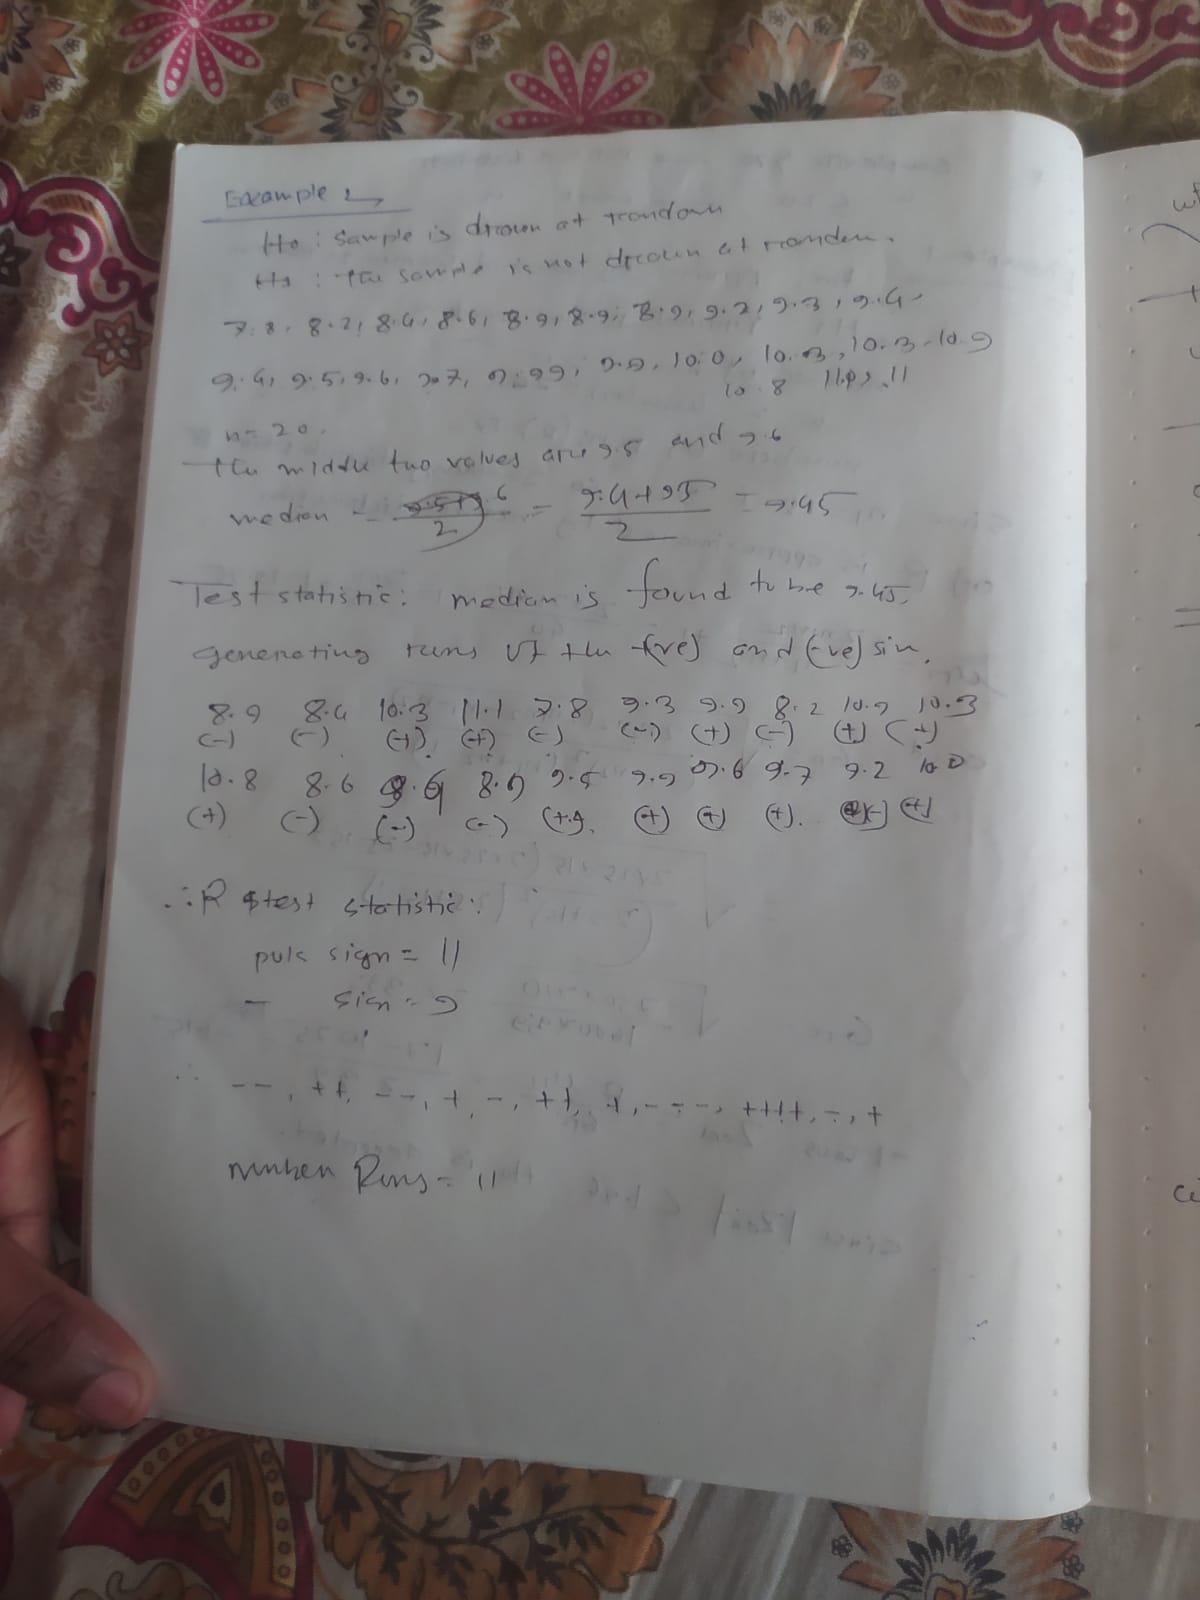 Example 2
H0 : Sample is drawn at random
H1 : the sample is not drawn at random.
7.8, 8.2, 8.4, 8.6, 8.9, 8.9, 8.9, 9.2, 9.3, 9.4,
9.4, 9.5, 9.6, 9.7, 9.99, 9.9, 10.0, 10.3, 10.3, 10.9
10.8 11
n = 20.
the middle two values are 9.5 and 9.6
median = 9.5+9.6/2 = 9.4+95/2 = 9.45
Test statistic: median is found to be 9.45.
generating runs of the +(ve) and (-ve) sin.
8.9 8.4 10.3 11.1 7.8 9.3 9.9 8.2 10.9 10.3
(-) (-) (+) (+) (-) (-) (+) (-) (+) (+)
10.8 8.6 8.9 9.5 9.9 9.6 9.7 9.2 10.0
(+) (-) (-) (-) (+) (+) (+) (+). (-) (+)
∴ R test statistic:
puls sign = 11
- sign = 9
∴ --, ++, --, +, -, ++, +, ---, ++++, -, +
number Runs = 11